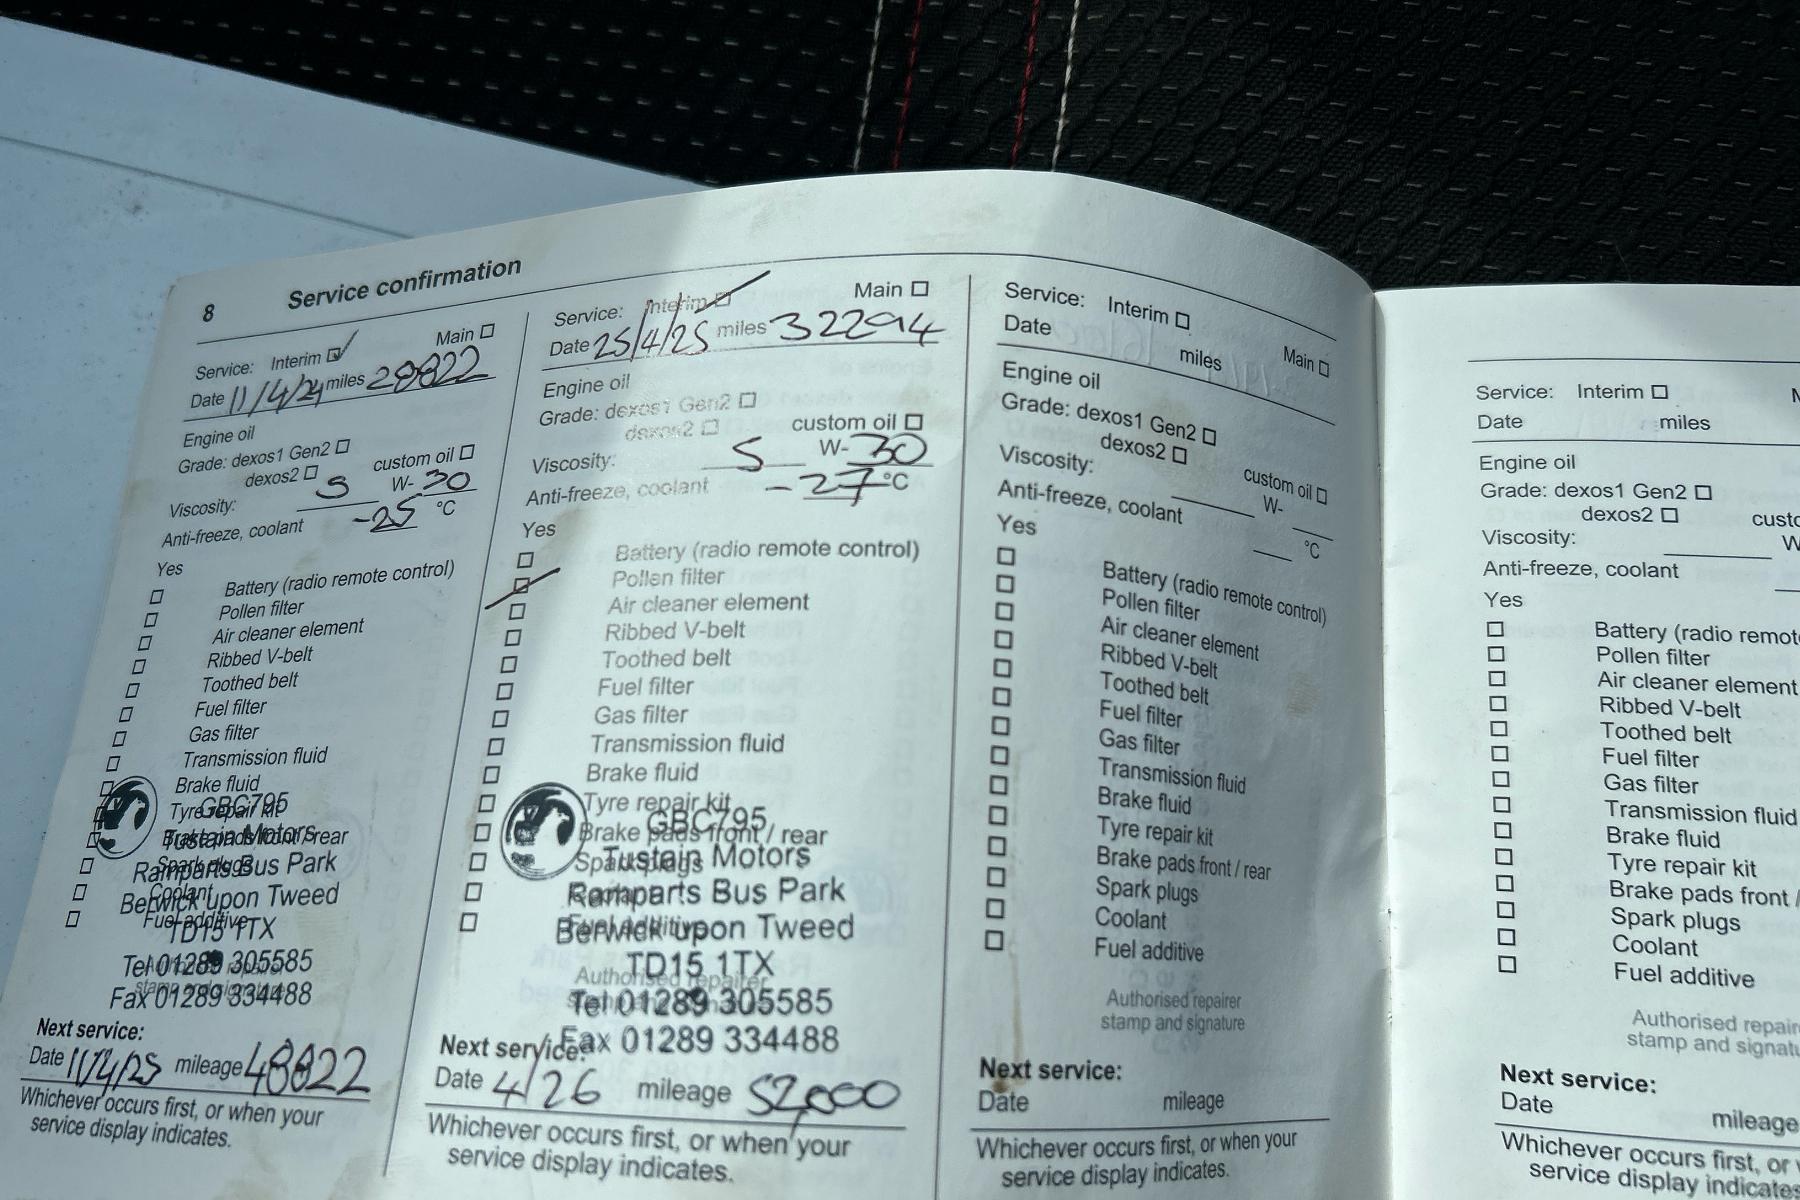 8 Service confirmation
Service: Interim Main
Date 11/4/24 miles 28822
Engine oil
Grade: dexos1 Gen2
dexos2 custom oil
Viscosity: 5 W- 30
Anti-freeze, coolant -25 °C
Yes
Battery (radio remote control)
Pollen filter
Air cleaner element
Ribbed V-belt
Toothed belt
Fuel filter
Gas filter
Transmission fluid
Brake fluid
Tyre repair kit
GBC795
Brake pads front / rear
Tustain Motors
Spark plugs
Ramparts Bus Park
Coolant
Berwick upon Tweed
Fuel additive
TD15 1TX
Authorised repairer
Tel 01289 305585
stamp and signature
Fax 01289 334488
Next service:
Date 11/4/25 mileage 48822
Whichever occurs first, or when your
service display indicates.
Service: Interim Main
Date 25/4/25 miles 32294
Engine oil
Grade: dexos1 Gen2
dexos2 custom oil
Viscosity: 5 W- 30
Anti-freeze, coolant -27 °C
Yes
Battery (radio remote control)
Pollen filter
Air cleaner element
Ribbed V-belt
Toothed belt
Fuel filter
Gas filter
Transmission fluid
Brake fluid
Tyre repair kit
GBC795
Brake pads front / rear
Tustain Motors
Spark plugs
Ramparts Bus Park
Coolant
Berwick upon Tweed
Fuel additive
TD15 1TX
Authorised repairer
stamp and signature
Tel 01289 305585
Fax 01289 334488
Next service:
Date 4/26 mileage 52,000
Whichever occurs first, or when your
service display indicates.
Service: Interim Main
Date miles
Engine oil
Grade: dexos1 Gen2
dexos2 custom oil
Viscosity: W-
Anti-freeze, coolant °C
Yes
Battery (radio remote control)
Pollen filter
Air cleaner element
Ribbed V-belt
Toothed belt
Fuel filter
Gas filter
Transmission fluid
Brake fluid
Tyre repair kit
Brake pads front / rear
Spark plugs
Coolant
Fuel additive
Authorised repairer
stamp and signature
Next service:
Date mileage
Whichever occurs first, or when your
service display indicates.
Service: Interim
Date miles
Engine oil
Grade: dexos1 Gen2
dexos2
Viscosity:
Anti-freeze, coolant
Yes
Battery (radio
Pollen filter
Air cleaner element
Ribbed V-belt
Toothed belt
Fuel filter
Gas filter
Transmission fluid
Brake fluid
Tyre repair kit
Brake pads front /
Spark plugs
Coolant
Fuel additive
Authorised
stamp and
Next service:
Date mileage
Whichever occurs first, or
service display